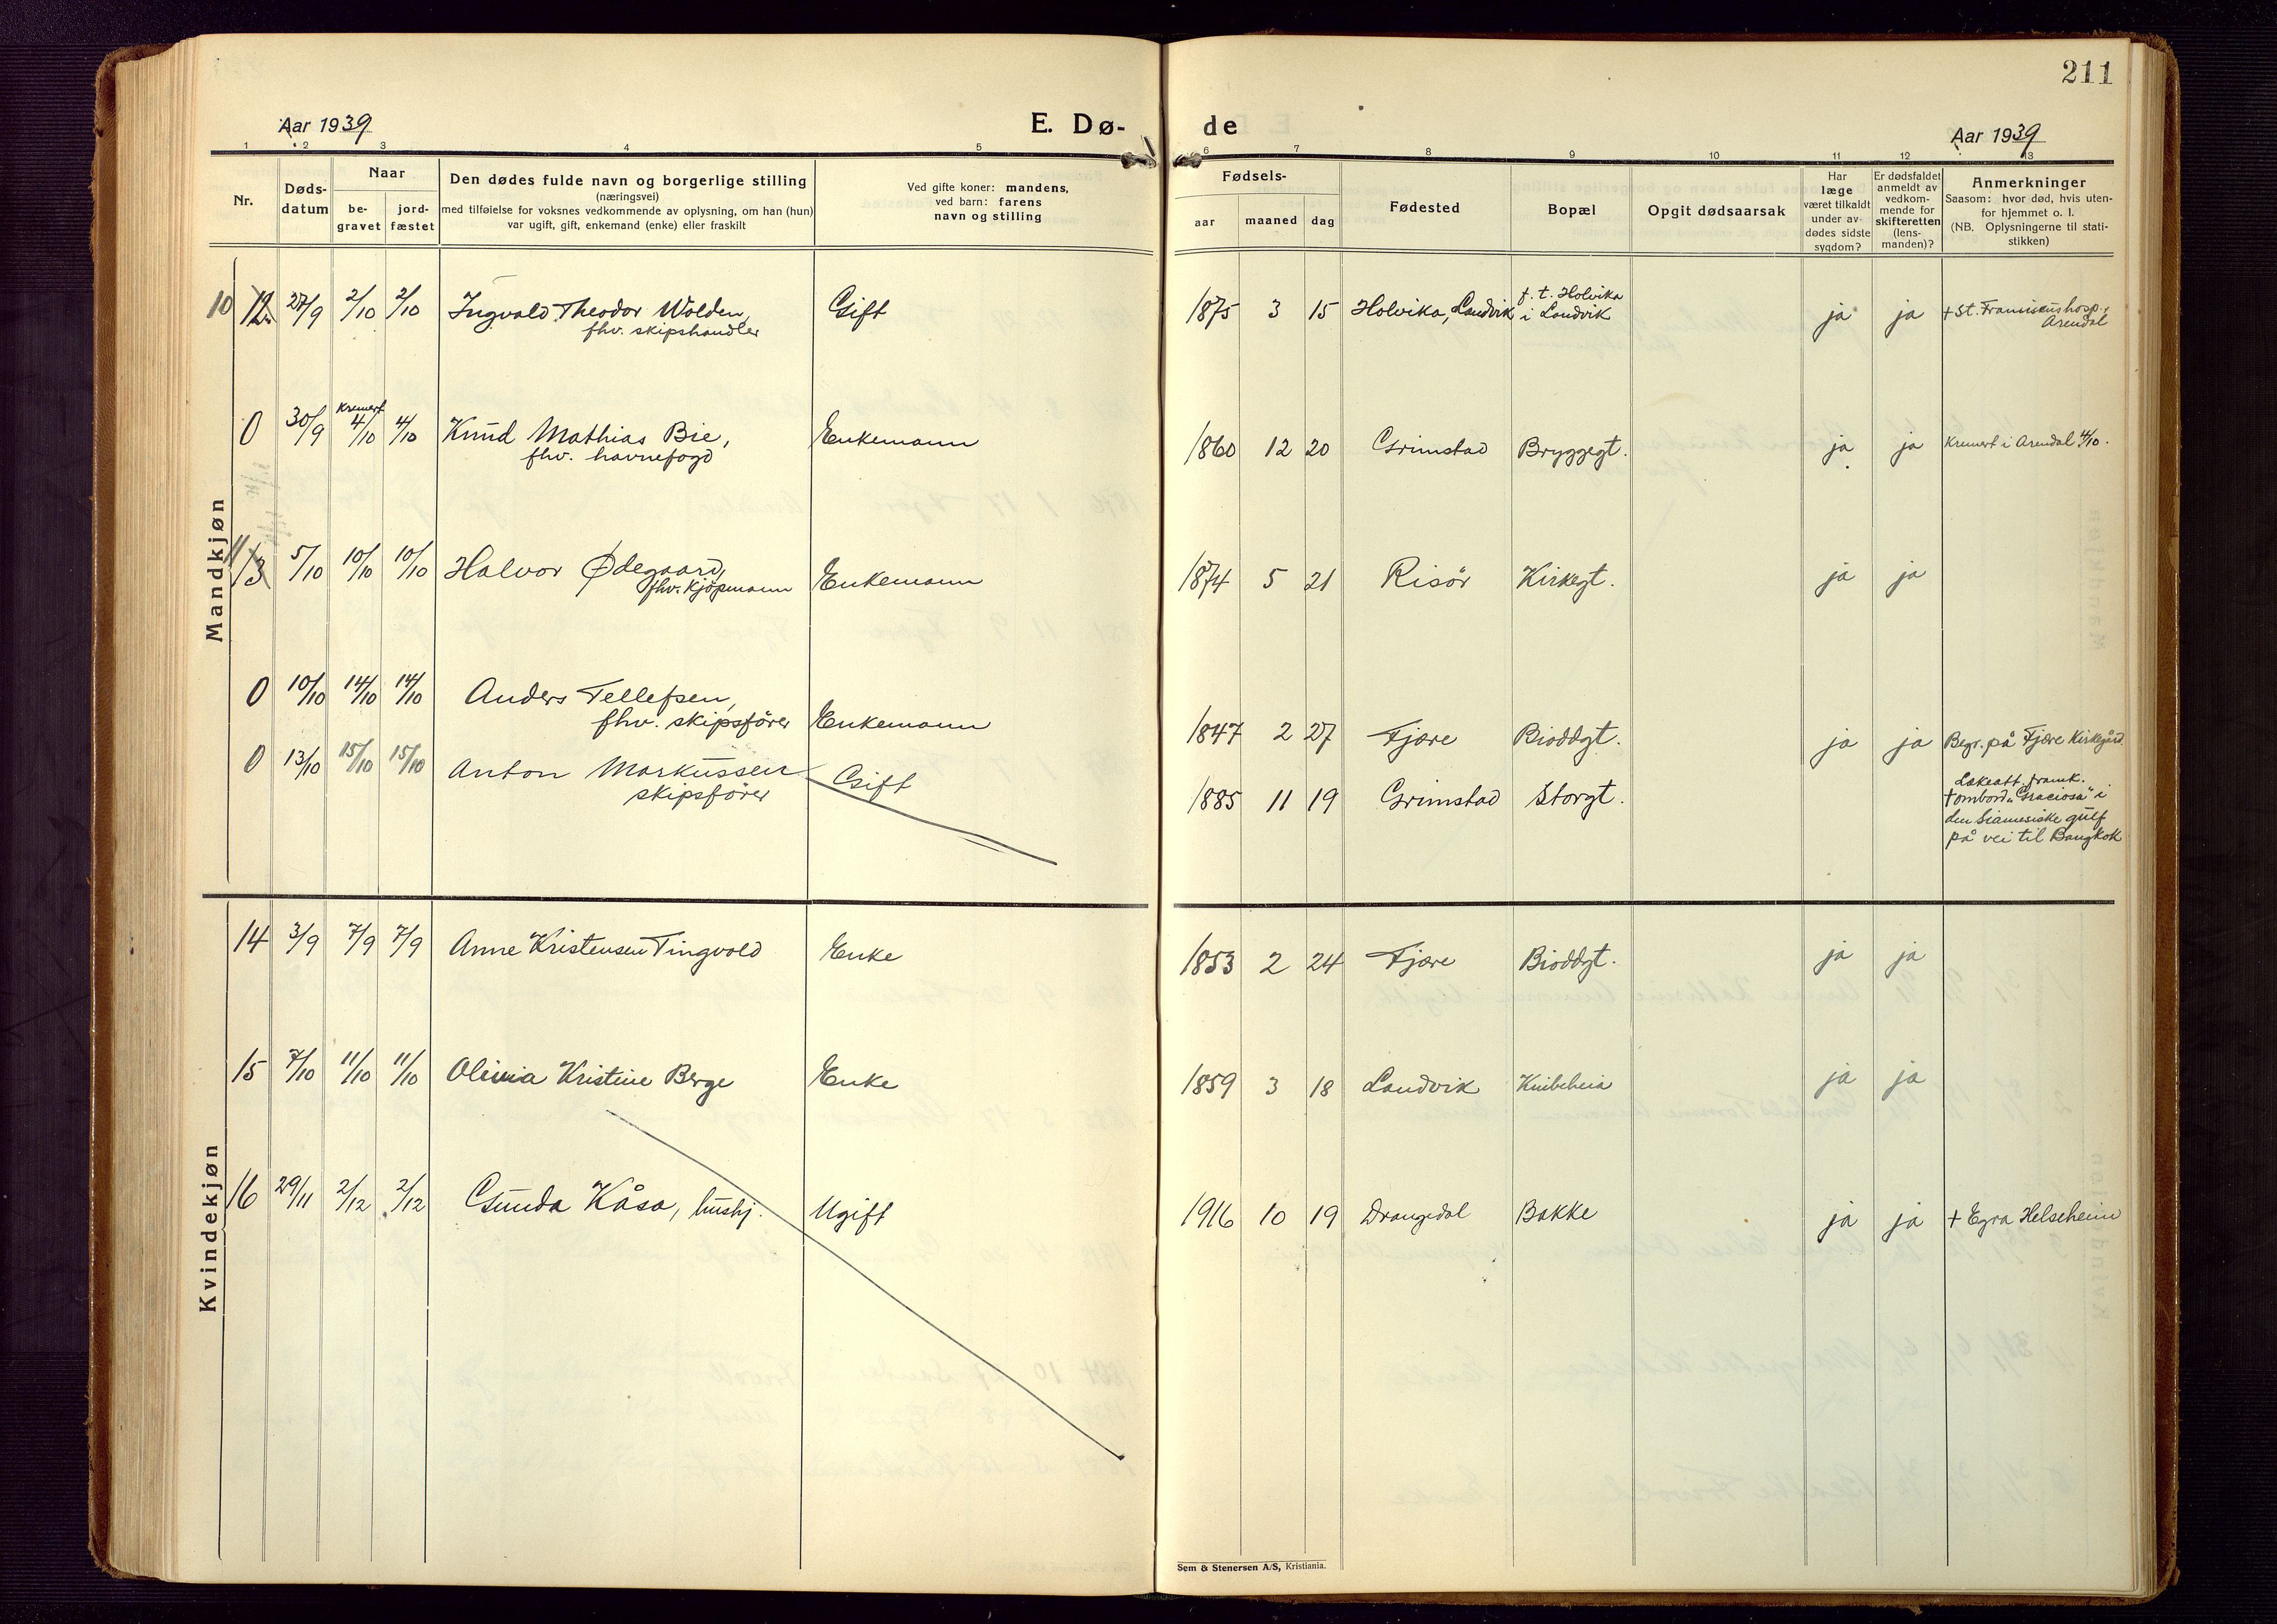 211
Aar 1939
E. Dø-
de
Aar 1939
1 2 3 4 5 6 7 8 9 10 11 12 13
Nr.
Døds-
datum
Naar
be-
gravet
jord-
fæstet
Den dødes fulde navn og borgerlige stilling
(næringsvei)
med tilføielse for voksnes vedkommende av oplysning, om han (hun)
var ugift, gift, enkemand (enke) eller fraskilt
Ved gifte koner: mandens,
ved barn: farens
navn og stilling
Fødsels-
aar
maaned
dag
Fødested
Bopæl
Opgit dødsaarsak
Har
læge
været tilkaldt
under av-
dødes sidste
sygdom?
Er dødsfaldet
anmeldt av
vedkom-
mende for
skifteretten
(lens-
manden)?
Anmerkninger
Saasom: hvor død, hvis uten-
for hjemmet o. l.
(NB. Oplysningerne til stati-
stikken)
Mandkjøn
10 12 27/9 2/10 2/10 Ingvald Theodor Wolden, Gift 1875 3 15 Holvika, Landvik f. t. Holvika
fhv. skipshandler i Landvik ja ja + St. Fransiscushosp.,
Arendal
0 30/9 Kremert 4/10 4/10 Knud Mathias Bie, Enkemann 1860 12 20 Grimstad Bryggegt. ja ja Kremert i Arendal 4/10.
fhv. havnefogd
11 13 5/10 10/10 10/10 Halvor Ødegaard, Enkemann 1874 5 21 Risör Kirkegt. ja ja
fhv. kjöpmann
0 10/10 14/10 14/10 Anders Tellefsen, 
fhv. skipsförer Enkemann 1847 2 27 Fjære Bioddgt. ja ja Begr. på Fjære Kirkegård
0 13/10 15/10 15/10 Anton Markussen Gift 1885 11 19 Grimstad Storgt.
skipsförer
Lækeatt. framk.
+ ombord "Graciosa" i
den Siamesiske gulf
på vei til Bangkok
Kvindekjøn
14 3/9 7/9 7/9 Anne Kristensen Tingvold Enke 1853 2 24 Fjære Bioddgt. ja ja
15 7/10 11/10 11/10 Olivia Kristine Berge Enke 1859 3 18 Landvik Knibeheia ja ja
16 29/11 2/12 2/12 Gunda Kåsa, hushj. Ugift 1916 10 19 Drangedal Bakke ja ja + Egra Helseheim
Sem & Stenersen A/S, Kristiania.